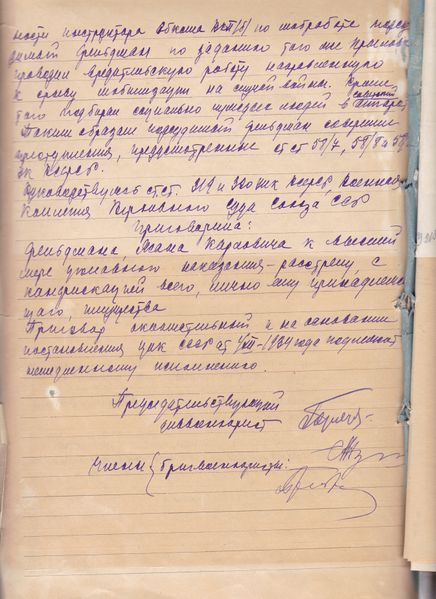 ности инструктора Обкома ВКП(б) по
димый Фельдман по заданию того же
проводил вредительскую работу направленную
к срыву мобилизации на случай войны. Кроме
того подбирал социально чуждых людей в советский аппарат
Таким образом подсудимый Фельдман совершил
преступления, предусмотренные ст.ст 58/7, 58/8 и 58/
УК РСФСР.
Руководствуясь ст.ст. 319 и 320 УПК РСФСР, Военная
Коллегия Верховного Суда Союза ССР
Приговорила:
Фельдмана, Карловича к высшей
мере уголовного наказания – расстрелу, с
конфискацией всего, лично ему принадлежа
щаго, имущества
Приговор окончательный и на основании
постановления ЦИК СССР от 1/XII-1934 года подлежит
немедленному исполнению.
Председательствующий
диввоенюрист
Члены { бригвоенюристы: